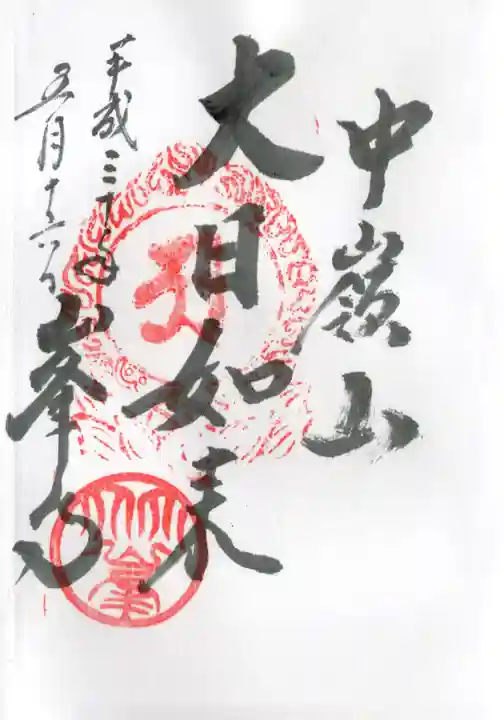 中嶺山
大日如来
平成三十年
五月十六日
峯の